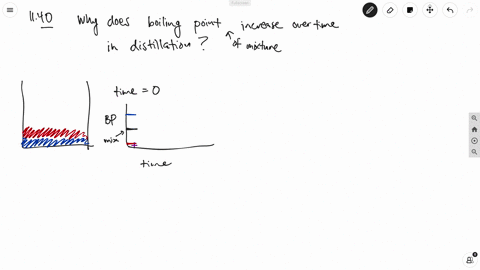 11.40 Why does boiling point increase over time
in distillation? of mixture
time = 0
BP
mix
time